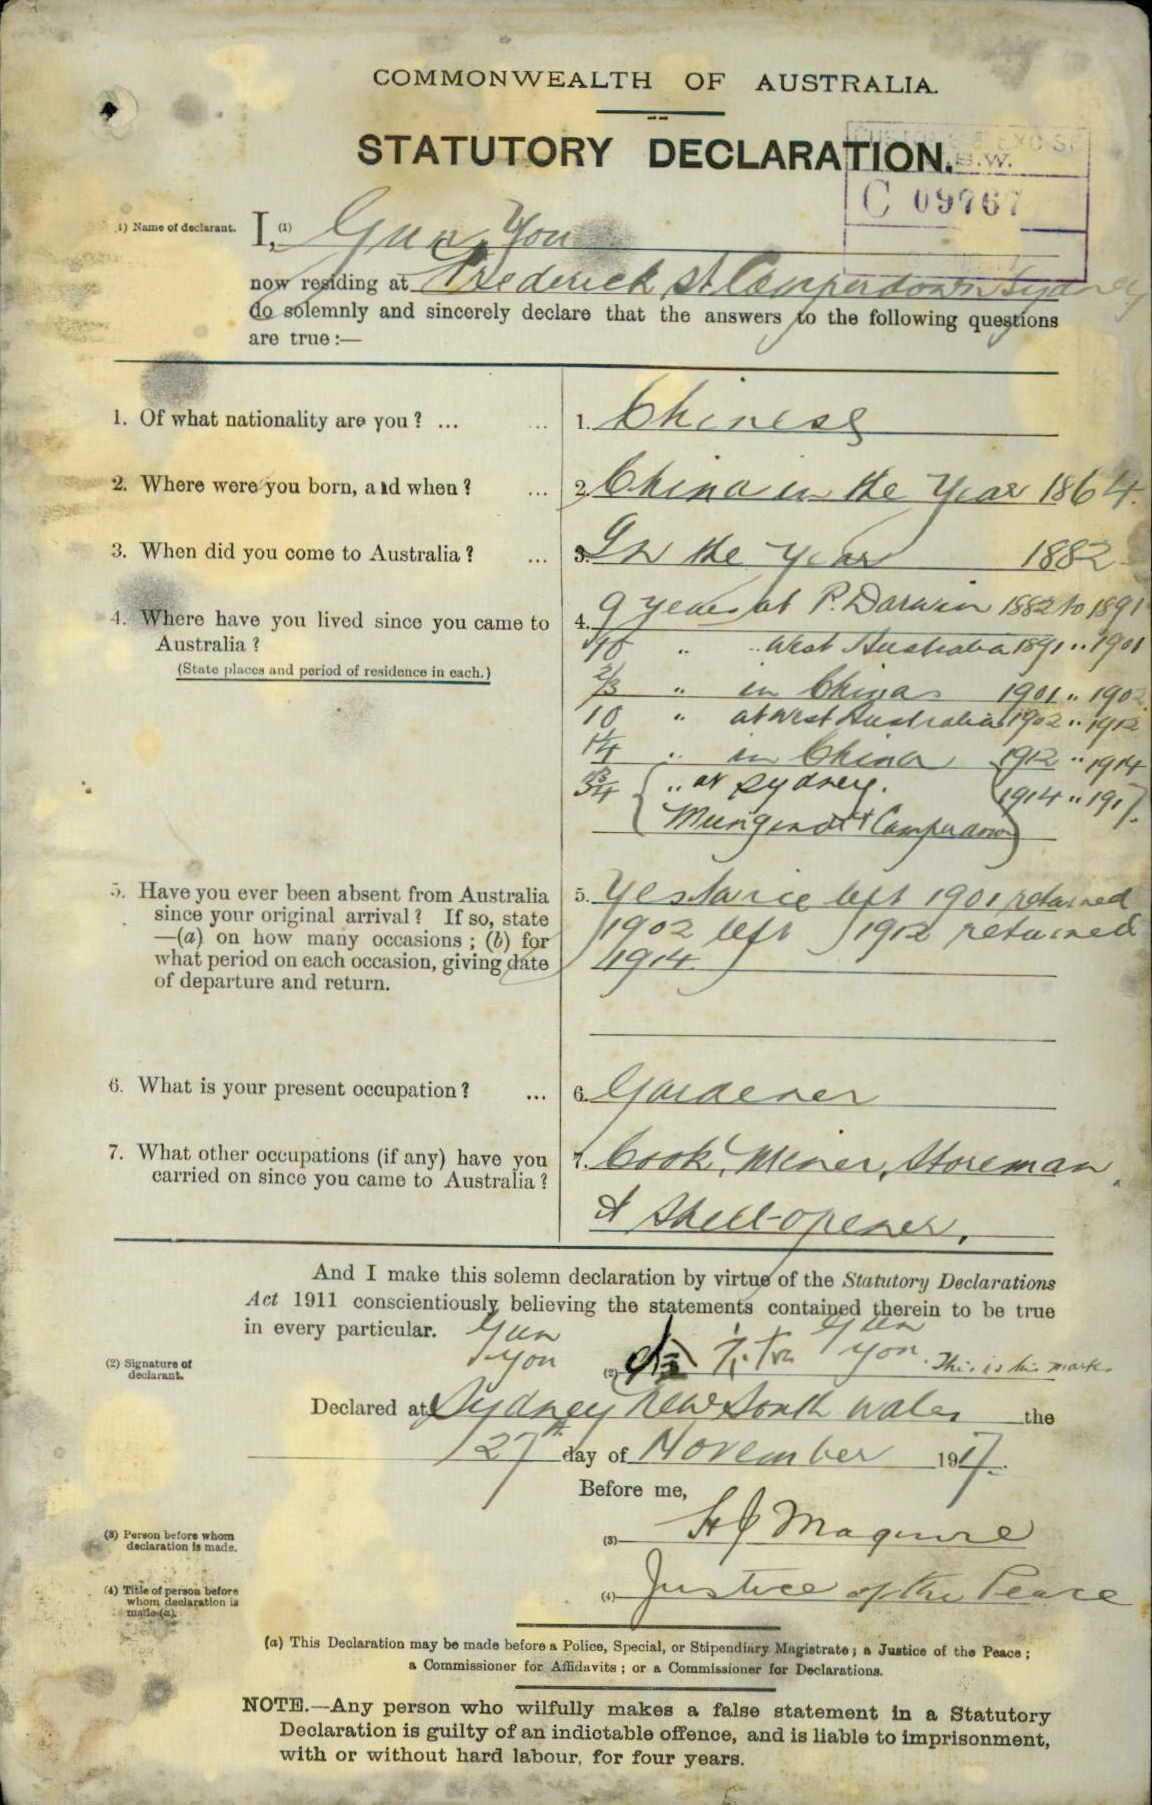 COMMONWEALTH OF AUSTRALIA.
STATUTORY DECLARATION.
CUSTOMS & EXCISE
N.S.W.
C 09767
(1) Name of declarant.
I, (1) Gun You
now residing at Frederick St Camperdown Sydney
do solemnly and sincerely declare that the answers to the following questions
are true:—
1. Of what nationality are you? ... ... 1. Chinese
2. Where were you born, and when? ... 2. China in the Year 1864.
3. When did you come to Australia? ... 3. In the year 1882
4. Where have you lived since you came to
Australia?
(State places and period of residence in each.)
4. 9 years at P. Darwin 1882 to 1891
10 " " West Australia 1891 " 1901
2/3 " in China 1901 " 1902
10 " at West Australia 1902 " 1912
1 1/4 " in China 1912 " 1914
3 3/4 " at Sydney. 1914 " 1917.
Mungindi & Camperdown
5. Have you ever been absent from Australia
since your original arrival? If so, state
—(a) on how many occasions; (b) for
what period on each occasion, giving date
of departure and return.
5. Yes twice left 1901 returned
1902 left 1912 returned
1914.
6. What is your present occupation? ... 6. Gardener
7. What other occupations (if any) have you
carried on since you came to Australia?
7. Cook, Miner, Storeman,
& Shell-opener.
And I make this solemn declaration by virtue of the Statutory Declarations
Act 1911 conscientiously believing the statements contained therein to be true
in every particular.
(2) Signature of
declarant.
Gun
You
(2) Gun
You. This is his mark.
Declared at Sydney New South Wales the
27th day of November 1917.
Before me,
(3) Person before whom
declaration is made.
(3) H J Maguire
(4) Title of person before
whom declaration is
made (a).
(4) Justice of the Peace
(a) This Declaration may be made before a Police, Special, or Stipendiary Magistrate; a Justice of the Peace;
a Commissioner for Affidavits; or a Commissioner for Declarations.
NOTE.—Any person who wilfully makes a false statement in a Statutory
Declaration is guilty of an indictable offence, and is liable to imprisonment,
with or without hard labour, for four years.